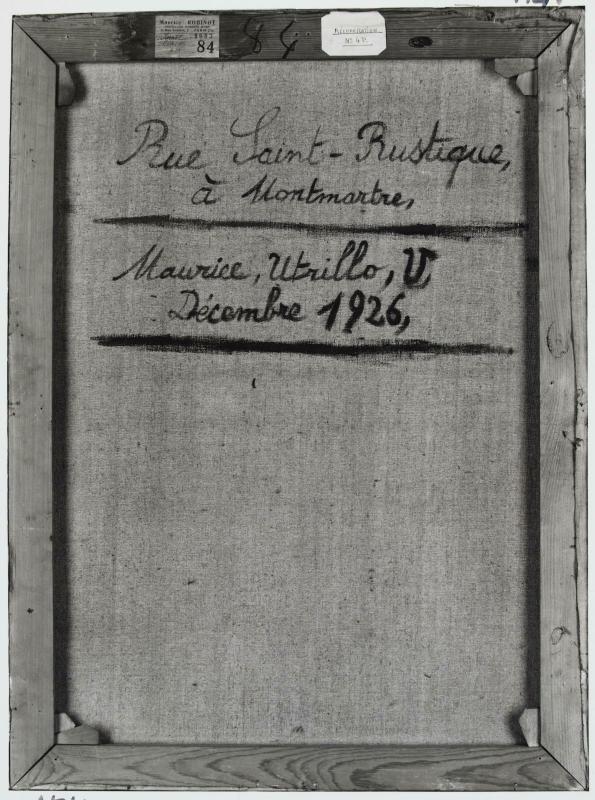 Maurice ROBINOT
84
84
RÉCUPÉRATION
No 4 P.
Rue Saint-Rustique,
à Montmartre,
Maurice, Utrillo, V,
Décembre 1926,